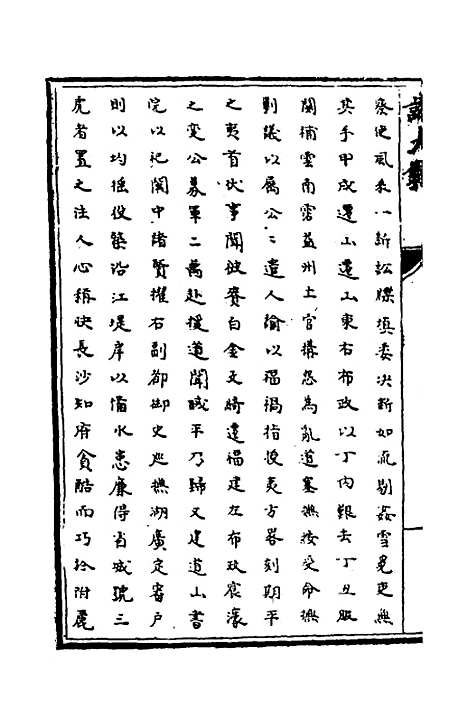 發吏風釆一新訟牒填委決斷如流剔姦雪冤吏無
其手甲戍遷山遷山東右布政以丁內艱去丁丑服
闋補雲南霑益州土官搆怨為亂道塞撫按受命撫
剿議以屬公公遣人諭以福禍指授夷方畧刻期平
之夷首伏事聞被賚白金文綺遷福建左布政宸濠
之變公募軍二萬赴援道聞賊平乃歸又建道山書
院以祀閩中諸賢擢右副都御史廵撫湖廣定審戶
則以均徭役築沿江堤岸以備水患廉得省城號三
虎者置之法人心稱快長沙知府貪酷而巧於附麗